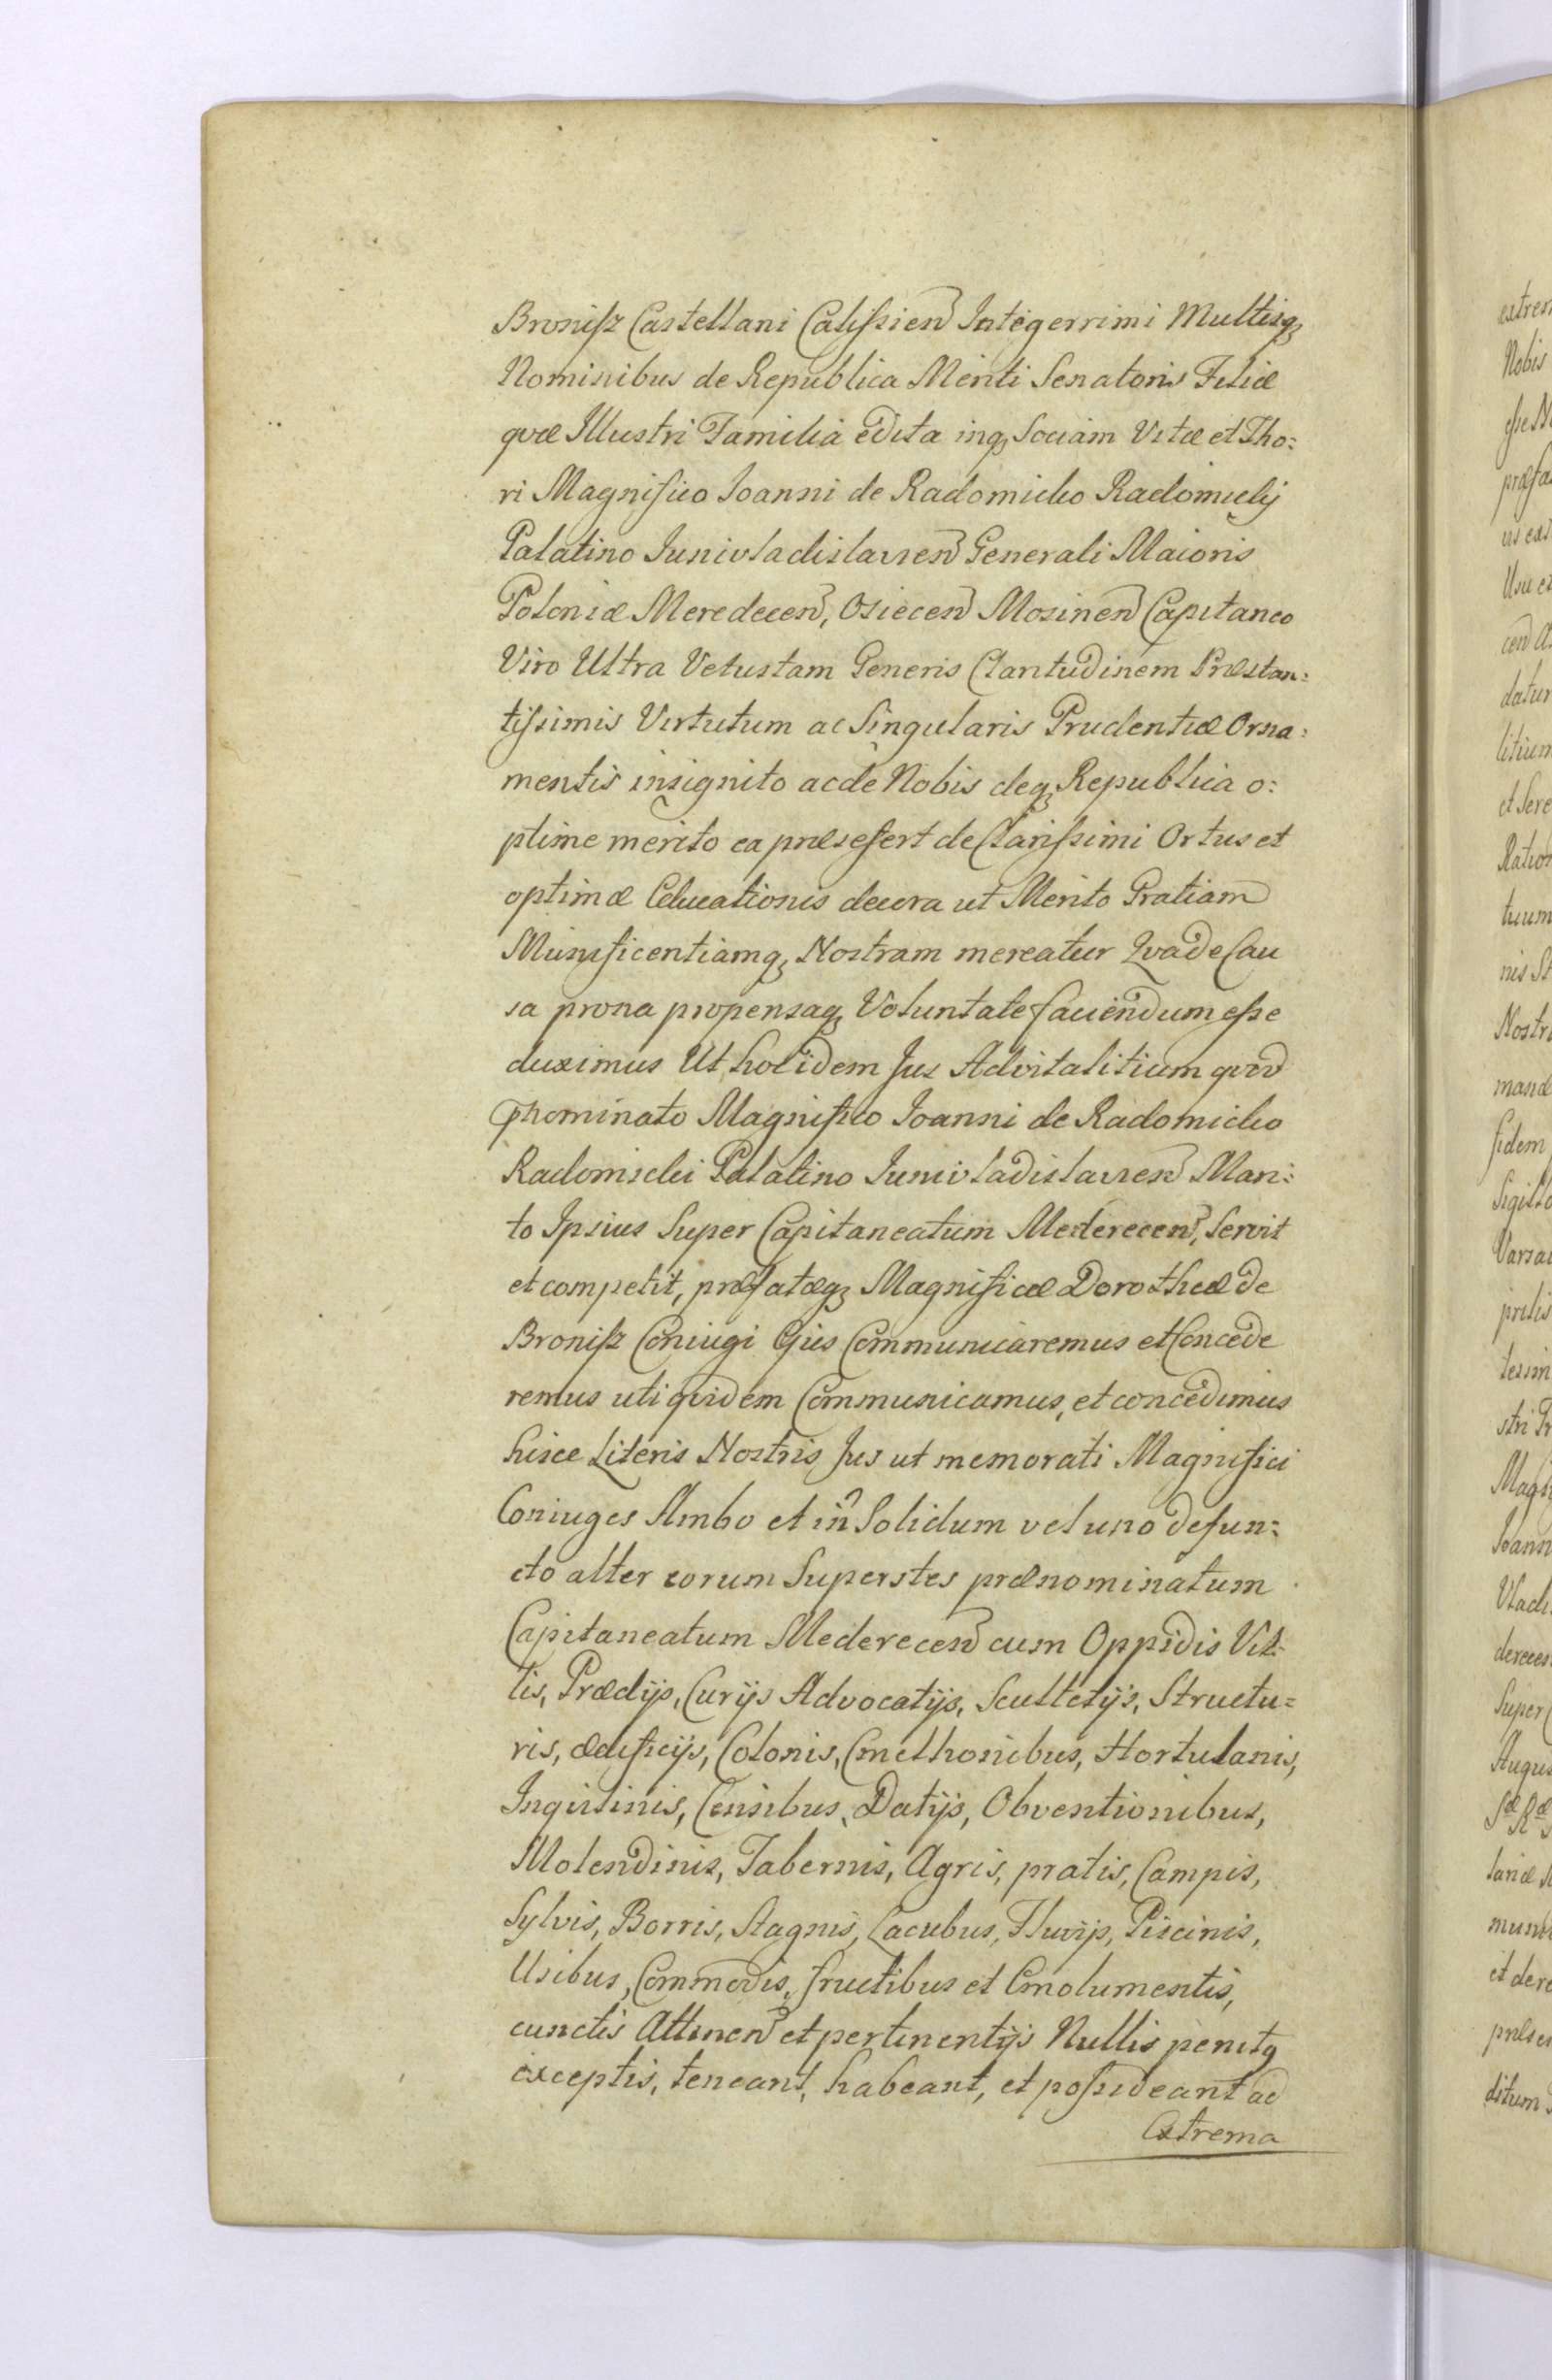 Broniſz Castellani Caliſsien Integerrimi Multisq
Nominibus de Republica Meriti Senatoris Filiæ
qvæ Illustri Familiâ edita inq Sociam Vitæ et Tho:
ri Magnifico Ioanni de Radomicko Radomicky
Palatino Iunivladislavien Generali Maioris
Poloniæ Meredecen, Osiecen Mosinen Capitaneo
Viro Ultra Vetustam Generis Claritudinem Præstan:
tiſsimis Virtutum ac Singularis Prudentiæ Orna:
mentis insignito ac de Nobis deq Republica o:
ptime merito ea præsefert de Clariſsimi Ortus et
optimæ Educationis decora ut Merito Gratiam
Munificentiamq Nostram mereatur Qva de Cau
sa prona propensaq Voluntate faciendum eſse
duximus Ut hoc idem Jus Advitalitium qvod
Prnominato Magnifico Ioanni de Radomicko
Radomicki Palatino Iunivladislavien Mari:
to Ipsius Super Capitaneatum Mederecen, Servit
et competit, præfatæq Magnificæ Dorotheæ de
Broniſz Coniugi Ejus Communicaremus et Concede
remus uti qvidem Communicamus, et concedimus
hisce Literis Nostris Jus ut memorati Magnifici
Coniuges Ambo et in Solidum vel uno defun:
cto alter eorum Superstes prænominatum
Capitaneatum Mederecen cum Oppidis Vil:
lis, Prædijs, Curijs Advocatijs, Scultetijs, Structu=
ris, ædificijs, Colonis, Cmethonibus, Hortulanis,
Inqvilinis, Censibus, Datijs, Obventionibus,
Molendinis, Tabernis, Agris, pratis, Campis,
Sylvis, Borris, Stagnis, Lacubus, Fluvijs, Piscinis,
Usibus, Commodis, fructibus et Emolumentis,
cunctis Attinen et pertinentijs Nullis penitq
exceptis, teneant, habeant, et poſsideant ad
Extrema